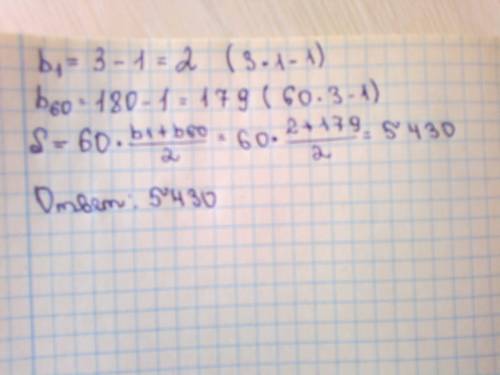 b₁ = 3 - 1 = 2 (3·1-1)
b₆₀ = 180 - 1 = 179 (60·3-1)
S = 60 · (b₁+b₆₀)/2 = 60 · (2+179)/2 = 5430
Ответ: 5430